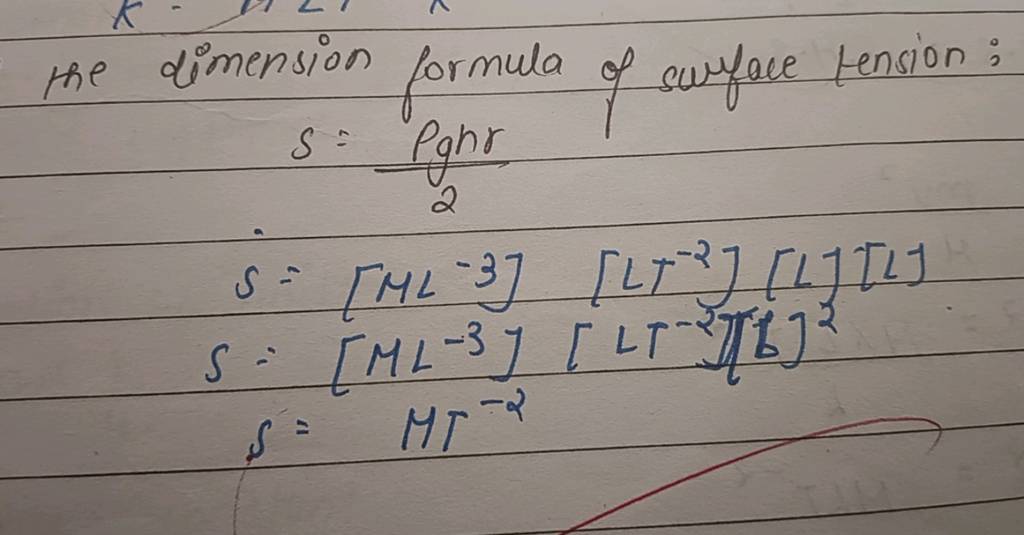 the dimension formula of surface tension :
S = ρghr
2
S = [ML⁻³] [LT⁻²] [L] [L]
S = [ML⁻³] [LT⁻²][L]²
S = MT⁻²